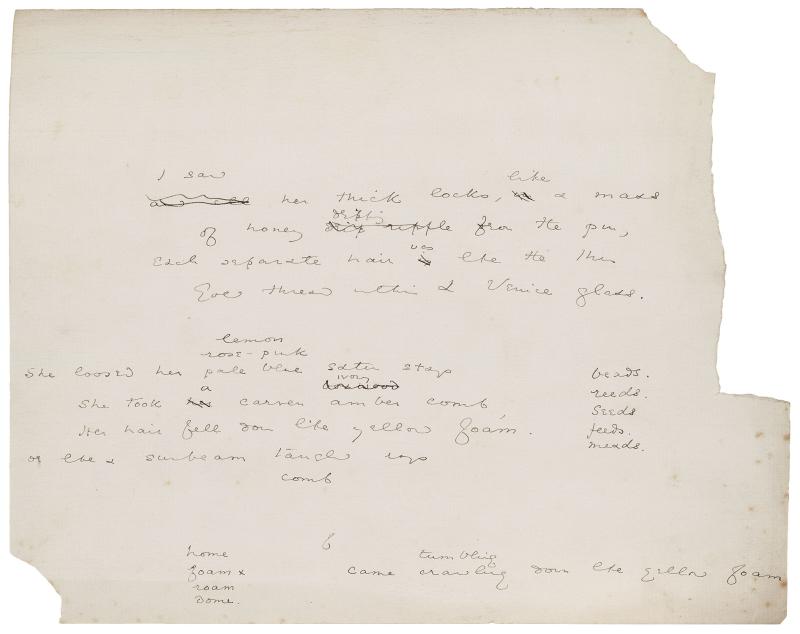 I saw like
her thick locks, a mass
drip
of honey ripple from the pin,
was
Each separate hair like the thin
Gold thread within a Venice glass.
lemon
rose-pink
She loosed her pale blue satin stays beads.
a ivory reeds.
She took carven amber comb seeds
Her hair fell down like yellow foam. feeds.
or like a sunbeam's tangled rays meads.
comb
home 6 tumbling
foam x came crawling down like yellow foam
roam
dome.